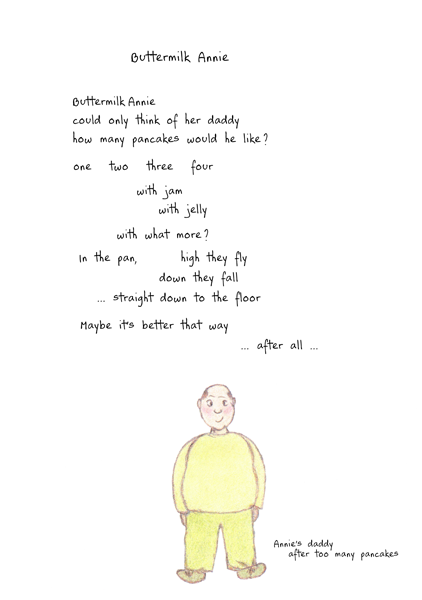 Buttermilk Annie
Buttermilk Annie
could only think of her daddy
how many pancakes would he like?
one two three four
with jam
with jelly
with what more?
In the pan, high they fly
down they fall
... straight down to the floor
Maybe it's better that way
... after all ...
Annie's daddy
after too many pancakes